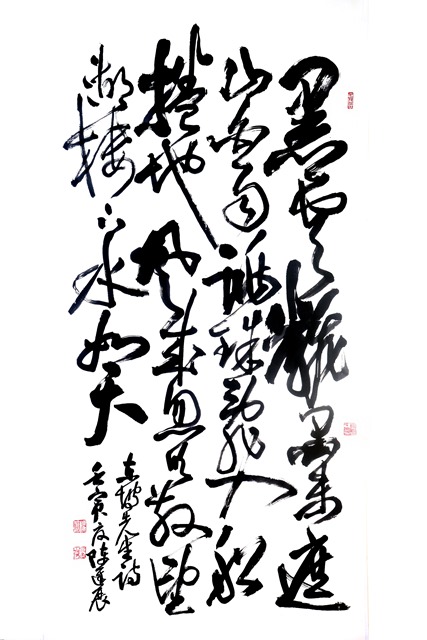 黑雲翻墨未遮
山白雨跳珠亂入船
捲地風來忽吹散望
湖樓下水如天
東坡先生詩
壬寅夏陳